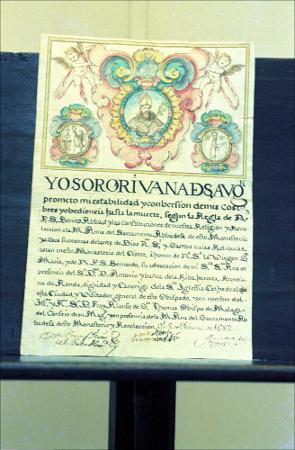 YO SOROR IVANA DSAVO
prometo mi estabilidad y conbersion de mis Cost
bres y obediencia hasta la muerte, segun la Regla de N.
P. S. Benito Abbad y las constituciones de nuestra Religion, y Recole
ccion a la M. Ana del Sacramento Abbadesa de este Monasterio
y a sus sucesoras delante de Dios N. S. y Santos cuias Reliquias
estan en este Monasterio del Cister, a honor de N. S. la Virgen S.
Maria, y de N. P. S. Bernardo, su advocacion de mi S. S. Ana en
presencia del S. D. D. Antonio Ybañez de la Riba herrera, Arcedia
no de Ronda, dignidad y Canonigo de la S. Iglesia Cathedral de
esta Ciudad y Visitador general de este Obispado, y en nombre del
Ill. y R. S. D. Fray Alonso de S. Thomas Obispo de Malaga
del Consejo de su Mag. y en presencia de la M. Ana del Sacramento Ab
badesa de este Monasterio y Recoleccion. de 1682